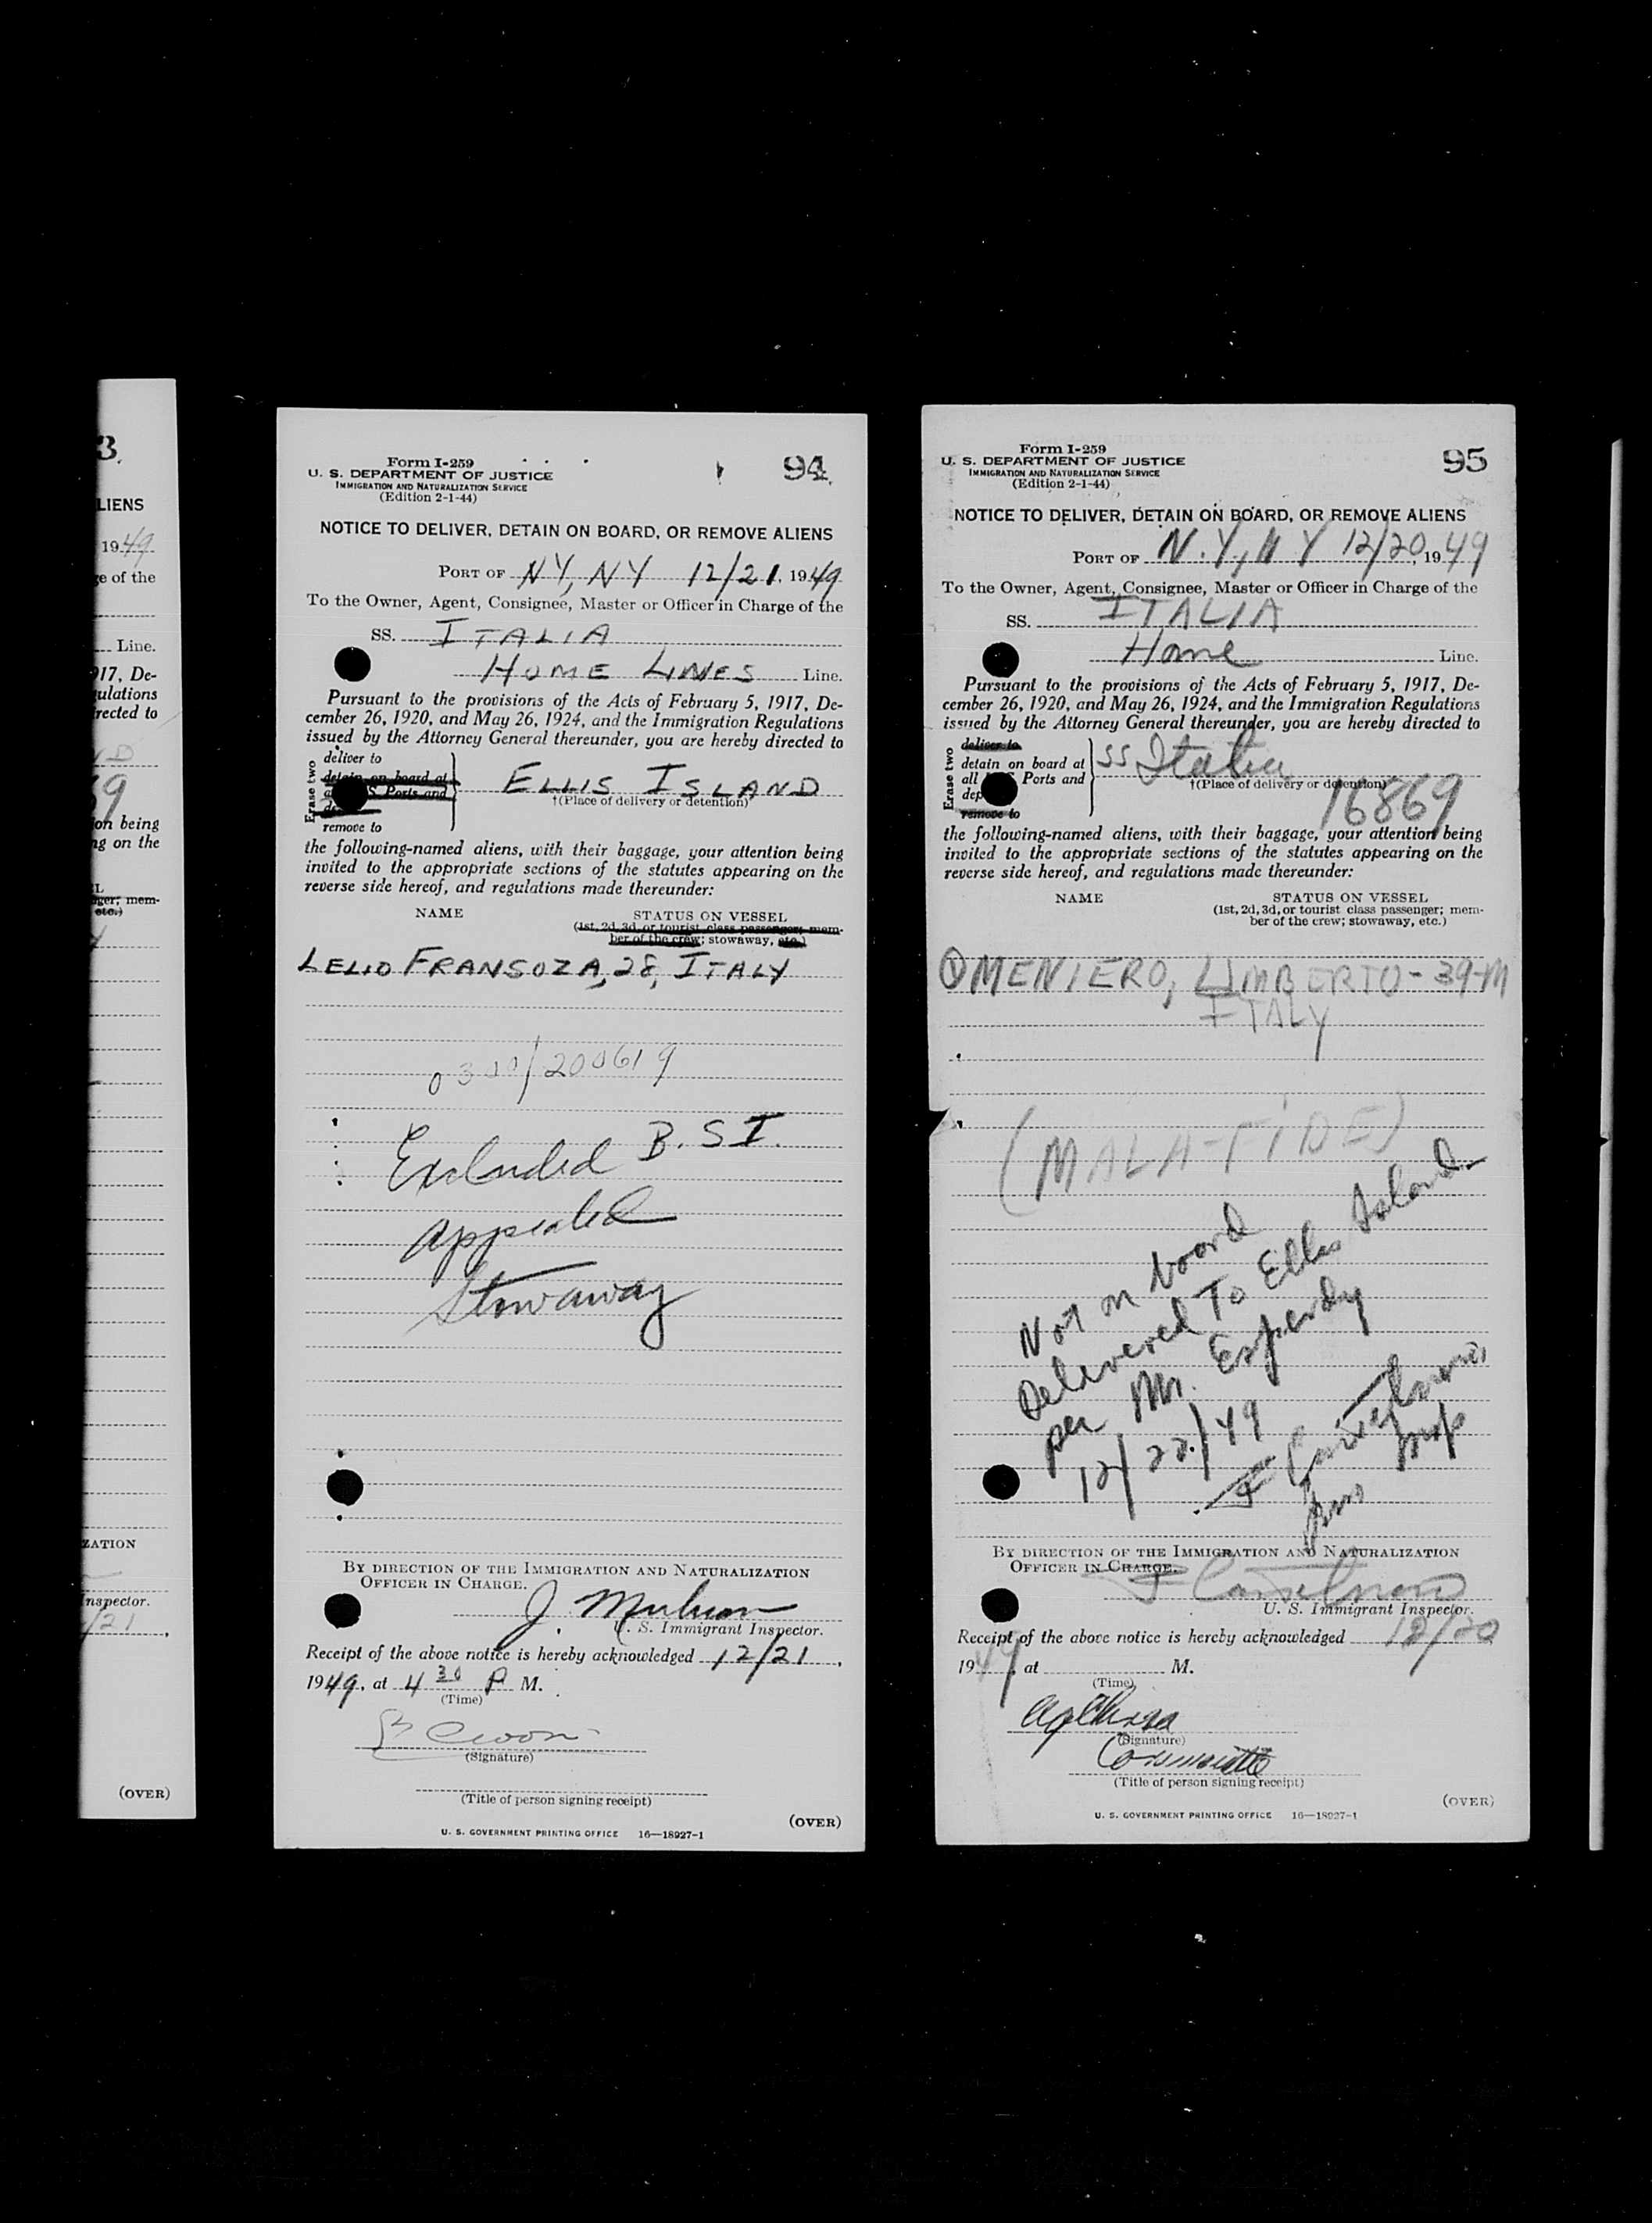 3
LIENS
1949
ge of the
Line.
917, De-
gulations
rected to
ND
69
on being
ng on the
EL
nger; mem-
etc.)
ZATION
Inspector.
/21
(OVER)
Form I-259
94
U. S. DEPARTMENT OF JUSTICE
IMMIGRATION AND NATURALIZATION SERVICE
(Edition 2-1-44)
NOTICE TO DELIVER, DETAIN ON BOARD, OR REMOVE ALIENS
PORT OF NY, NY 12/21, 1949
To the Owner, Agent, Consignee, Master or Officer in Charge of the
SS. ITALIA
HOME LINES Line.
Pursuant to the provisions of the Acts of February 5, 1917, De-
cember 26, 1920, and May 26, 1924, and the Immigration Regulations
issued by the Attorney General thereunder, you are hereby directed to
Erase two
deliver to
detain on board at
S. Ports and
remove to
ELLIS ISLAND
†(Place of delivery or detention)
the following-named aliens, with their baggage, your attention being
invited to the appropriate sections of the statutes appearing on the
reverse side hereof, and regulations made thereunder:
NAME STATUS ON VESSEL
(1st, 2d, 3d, or tourist class passenger; mem-
ber of the crew; stowaway, etc.)
LELIO FRANSOZA, 28, ITALY
0300/200619
Excluded B.S I.
Appealed
Stowaway
BY DIRECTION OF THE IMMIGRATION AND NATURALIZATION
OFFICER IN CHARGE.
J.
U. S. Immigrant Inspector.
Receipt of the above notice is hereby acknowledged 12/21,
1949, at 4 30 P M.
(Time)
(Signature)
(Title of person signing receipt)
(OVER)
U. S. GOVERNMENT PRINTING OFFICE 16—18927-1
Form I-259
95
U. S. DEPARTMENT OF JUSTICE
IMMIGRATION AND NATURALIZATION SERVICE
(Edition 2-1-44)
NOTICE TO DELIVER, DETAIN ON BOARD, OR REMOVE ALIENS
PORT OF N.Y, N Y 12/20, 1949
To the Owner, Agent, Consignee, Master or Officer in Charge of the
SS. ITALIA
Home Line.
Pursuant to the provisions of the Acts of February 5, 1917, De-
cember 26, 1920, and May 26, 1924, and the Immigration Regulations
issued by the Attorney General thereunder, you are hereby directed to
Erase two
deliver to
detain on board at
all Ports and
dep
remove to
SS Italia
†(Place of delivery or detention)
16869
the following-named aliens, with their baggage, your attention being
invited to the appropriate sections of the statutes appearing on the
reverse side hereof, and regulations made thereunder:
NAME STATUS ON VESSEL
(1st, 2d, 3d, or tourist class passenger; mem-
ber of the crew; stowaway, etc.)
① MENIERO, UMBERTO - 39-M
ITALY
(MALA-FIDE)
Not on board
Delivered To Ellis Island
per Mr. Esperdy
12/22/49
BY DIRECTION OF THE IMMIGRATION AND NATURALIZATION
OFFICER IN CHARGE.
U. S. Immigrant Inspector.
Receipt of the above notice is hereby acknowledged 12/20
1949, at M.
(Time)
(Signature)
(Title of person signing receipt)
(OVER)
U. S. GOVERNMENT PRINTING OFFICE 16—18927-1